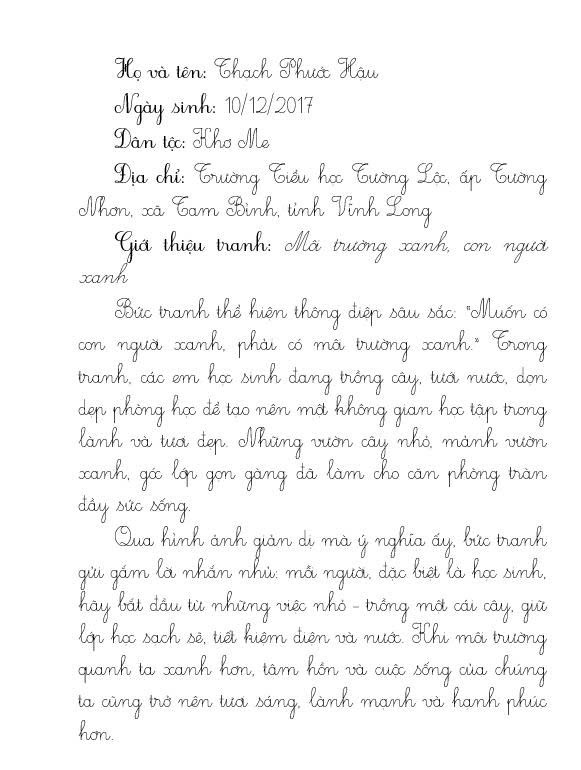 Họ và tên: Thạch Phước Hậu
Ngày sinh: 10/12/2017
Dân tộc: Khơ Me
Địa chỉ: Trường Tiểu học Tường Lộc, ấp Tường
Nhơn, xã Tam Bình, tỉnh Vĩnh Long
Giới thiệu tranh: Môi trường xanh, con người
xanh
Bức tranh thể hiện thông điệp sâu sắc: "Muốn có
con người xanh, phải có môi trường xanh." Trong
tranh, các em học sinh đang trồng cây, tưới nước, dọn
dẹp phòng học để tạo nên một không gian học tập trong
lành và tươi đẹp. Những vườn cây nhỏ, mảnh vườn
xanh, góc lớp gọn gàng đã làm cho căn phòng tràn
đầy sức sống.
Qua hình ảnh giản dị mà ý nghĩa ấy, bức tranh
gửi gắm lời nhắn nhủ: mỗi người, đặc biệt là học sinh,
hãy bắt đầu từ những việc nhỏ - trồng một cái cây, giữ
lớp học sạch sẽ, tiết kiệm điện và nước. Khi môi trường
quanh ta xanh hơn, tâm hồn và cuộc sống của chúng
ta cũng trở nên tươi sáng, lành mạnh và hạnh phúc
hơn.